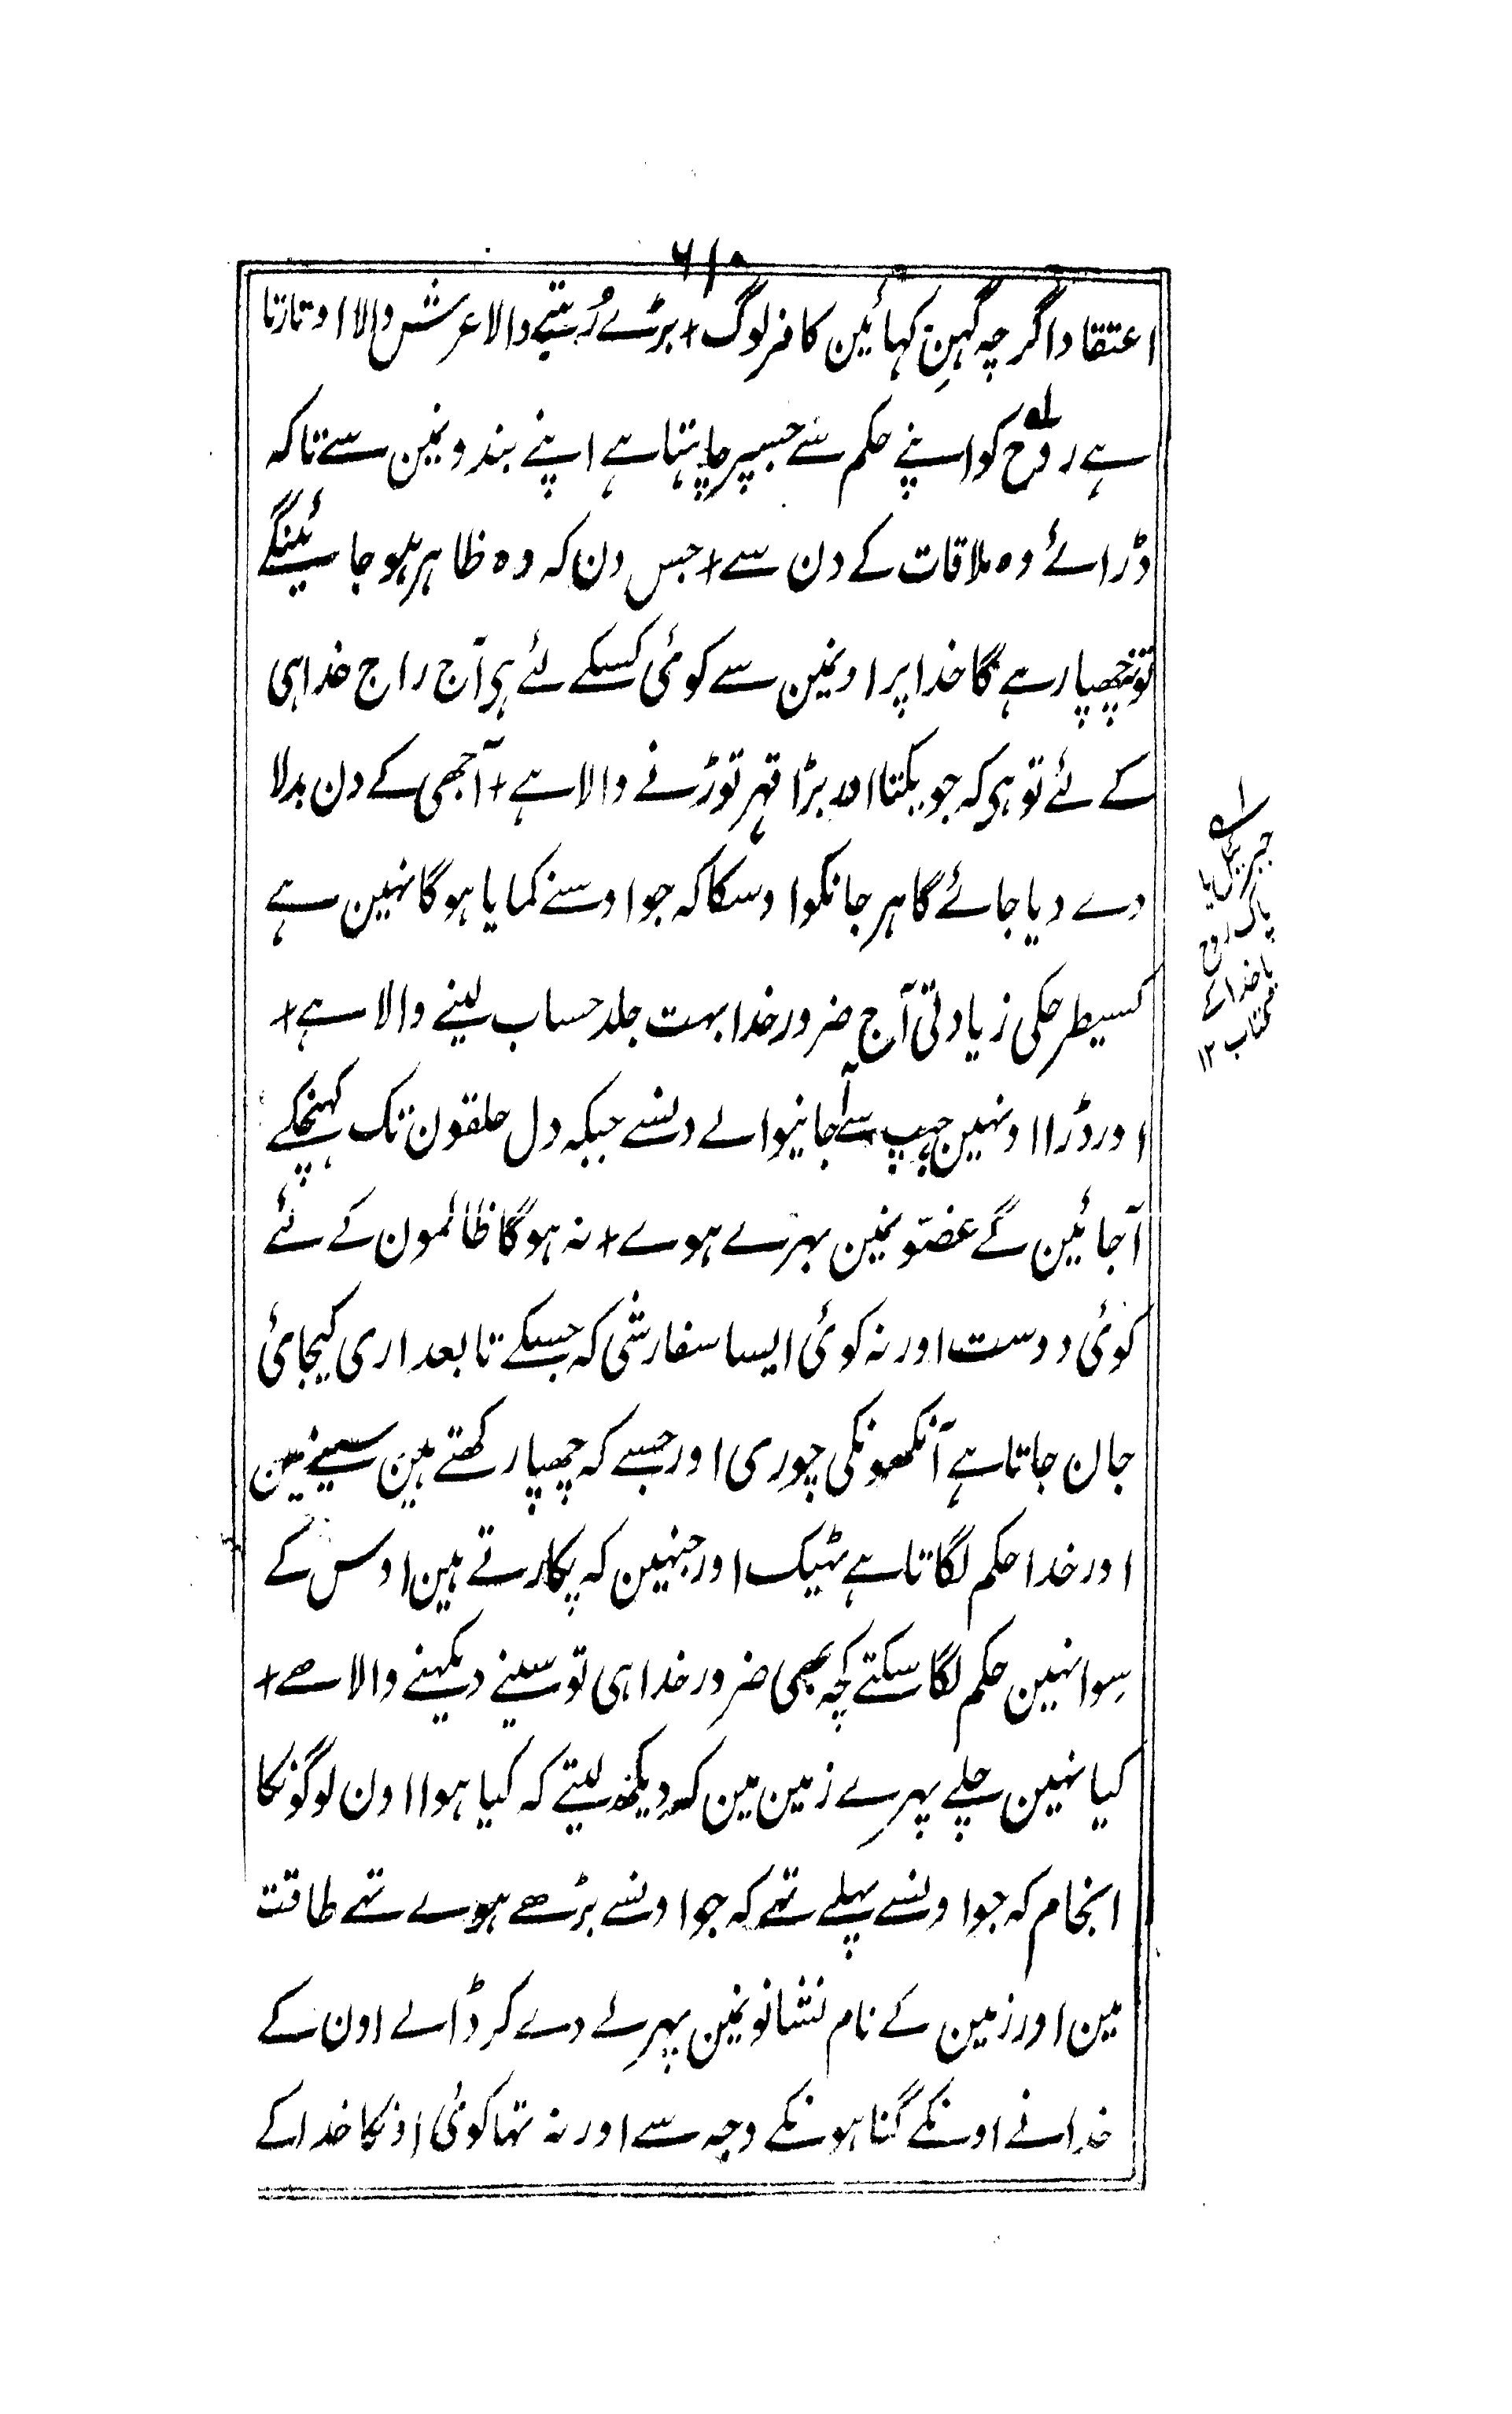 ۶۱۰
اعتقاد اگرچہ گہنِ کہائین کافر لوگ + بڑے رُتبے والا عرش والا اوتارتا
ہے روح کو اپنے حکم سے جسپر چاہتا ہے اپنے بندونمین سے تاکہ
ڈرائے وہ ملاقات کے دن سے + جس دن کہ وہ ظاہر ہو جائینگے
تو نچھپا رہے گا خدا پر اونمین سے کوئی کسکے لئے ہی آج راج خدا ہی
کے لئے تو ہی کہ جو یکتا اور بڑا قہر توڑنے والا ہے + آجھی کے دن بدلا
دے دیا جائے گا ہر جانکو اوسکا کہ جو اوسنے کمایا ہوگا نہین ہے
کسیطرحکی زیادتی آج ضرور خدا بہت جلد حساب لینے والا ہے +
اور ڈرا اونہین جھپ سے آجانیوالے دنسے جبکہ دل حلقون تک کہنچکے
آجائین گے غصّونمین بہرے ہوے + نہ ہوگا ظالمون کے لئے
کوئی دوست اور نہ کوئی ایسا سفارشی کہ جسکے تابعداری کیجائی
جان جاتا ہے آنکھونکی چوری اور جسے کہ چھپا رکھتے ہین سینے مین
اور خدا حکم لگاتا ہے ٹہیک اور جنہین کہ پکارتے ہین اوس کے
سِوا نہین حکم لگا سکتے کچہ بھی ضرور خدا ہی تو سننے دیکہنے والا ہے +
کیا نہین چلے پہرے زمین مین کہ دیکھ لیتے کہ کیا ہوا اون لوگونکا
انجام کہ جو اونسے پہلے تھے کہ جو اونسے بڑھے ہوے تہے طاقت
مین اور زمین کے نام نشانونمین پہر لے دے کر ڈالے اون کے
خدا نے اونکے گناہونکے وجہ سے اور نہ تہا کوئی اونکا خدا کے
لہ
جبرئیل یا
پاک روح
یا خدا کے
کتاب ۱۲